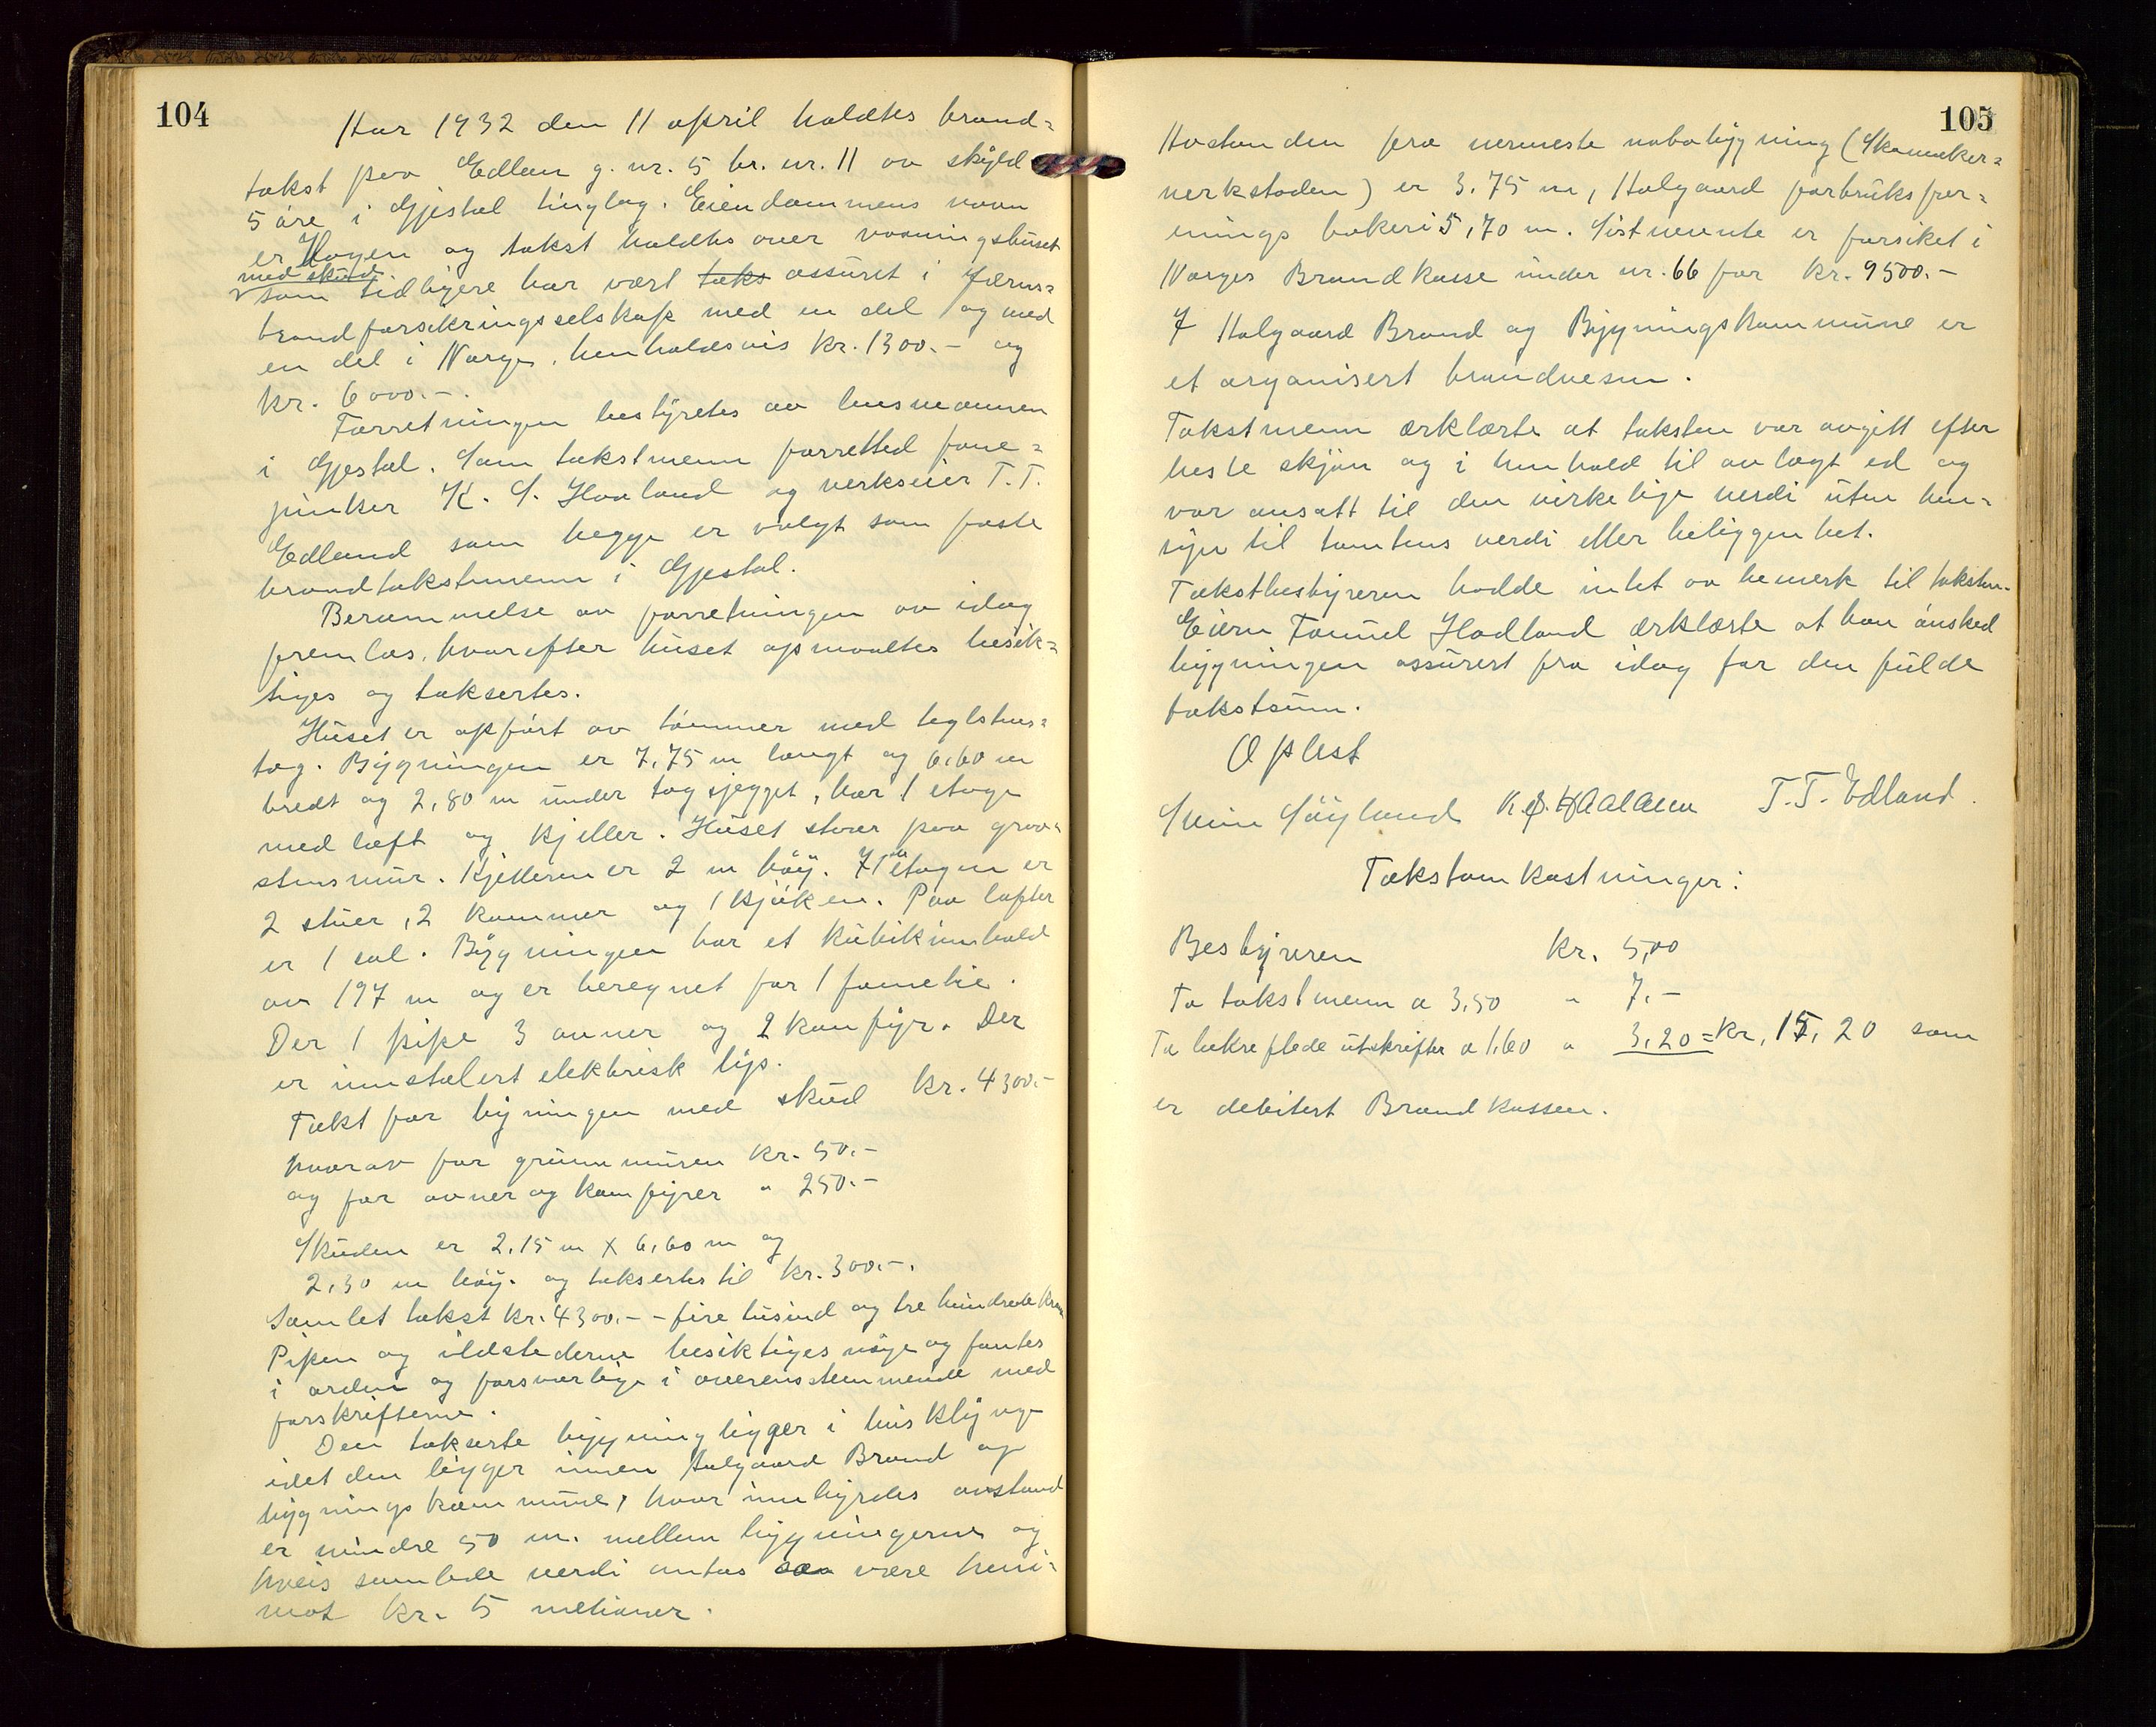 104
Aar 1932 den 11 april holdtes brand=
takst paa Edland g. nr. 5 br. nr. 11 av skyld
5 øre i Gjestal tinglag. Eiendommens navn
er Hagen og takst holdtes over vaaningshuset
med skud.
som tidligere har vært taks assuret i Jærens
brandforsikringsselskap med en del og med
en del i Norges, henholdsvis kr. 1300.- og
kr. 6000.-.
Forretningen bestyretes av lensmannen
i Gjestal. Som takstmenn forretted
K. S. Haaland og verkseier T. T.
Edland som begge er valgt som faste
brandtakstmenn i Gjestal.
Berammelse av forretningen av idag
fremlas, hvorefter huset opmaaltes besik=
tiges og taksertes.
Huset er opført av tømmer med teglstens=
tag. Bygningen er 7,75 m langt og 6,60 m
bredt og 2,80 m under tagsjegget, har 1 etage
med loft og kjeller. Huset staar paa graa=
stensmur. Kjelleren er 2 m høy. I 1ste etagen er
2 stuer, 2 kammer og 1 kjøken. Paa loftet
er 1 sal. Bygningen har et kubikinnhold
av 197 m og er beregnet for 1 famelie.
Der 1 pipe 3 ovner og 2 komfyr. Der
er innstalert elektrisk lys.
Takt for bygningen med skud kr. 4300.-
hvorav for grunnmuren kr. 50.-
og for ovner og komfyrer " 250.-
Skuden er 2,15 m x 6,60 m og
2,30 m høy. og taksertes til kr. 300.-.
Samlet takst kr. 4300.- - fire tusind og tre hundrede kron
Pipen og ildstederne besiktiges nøye og fantes
i orden og forsvarlige i overensstemmende med
forskrifterne.
Den takserte bygning ligger i husklynge
idet den ligger innen Aalgaard Brand og
bygningskommune, hvor innbyrdes avstand
er mindre 50 m. mellem bygningerne og
hveis samlede verdi antas aa være heni=
mot kr. 5 melioner.
105
Avstanden fra nermeste nabobygning (Skomaker=
verkstaden) er 3.75 m, Aalgaard forbruksfor=
enings bakeri 5,70 m. Sistnevnte er forsiket i
Norges Brandkasse under nr. 66 for kr. 9500.-
I Aalgaard Brand og Bygningskommune er
et organisert brandvesen.
Takstmenn ærklærte at taksten var avgitt efter
beste skjøn og i henhold til avlagt ed og
var ansatt til den virkelige verdi uten hen=
syn til tomtens verdi eller beliggenhet.
Takstbestyreren hadde intet aa bemerk til taksten.
Eieren Tønnes Hadland ærklærte at han ønsked
bygningen assurert fra idag for den fulde
takstsum.
Oplest
Søyland K. S. Haaland T. T. Edland.
Takstomkostninger:
Bestyreren kr. 5,00
To takstmenn a 3,50 " 7.-
To bekreftede utskrifter a 1,60 " 3,20 = kr. 15,20 som
er debitert Brandkassen.